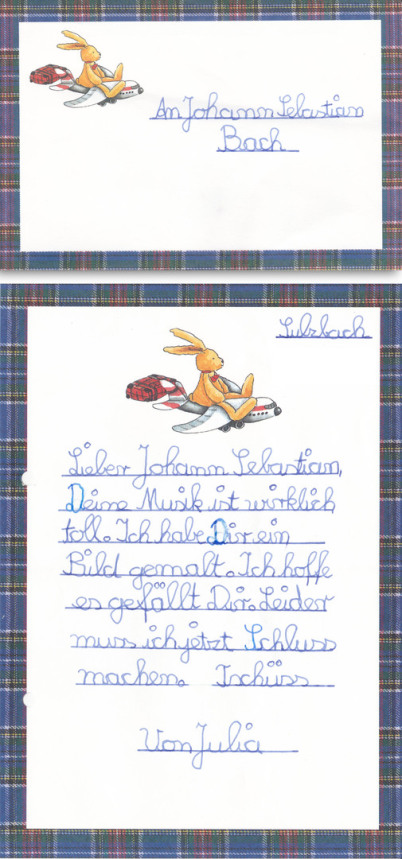 An Johann Sebastian
Bach
Sulzbach
Lieber Johann Sebastian,
Deine Musik ist wirklich
toll. Ich habe Dir ein
Bild gemalt. Ich hoffe
es gefällt Dir. Leider
muss ich jetzt Schluss
machen. Tschüss
Von Julia